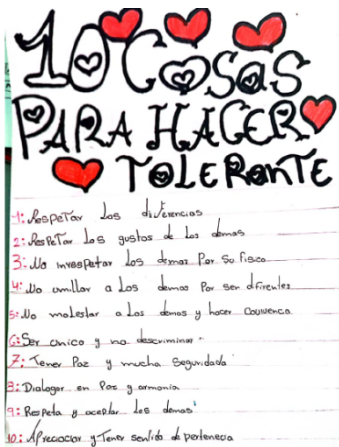 10 COSAS
PARA HACER
TOLERANTE
1: Respetar los diferencias
2: Respetar los gustos de los demas
3: No irrespetar los demas Por su fisico
4: No umillar a los demas Por ser difirentes
5: No molestar a los demas y hacer couvenca
6: Ser unico y no descriminar.
7: Tener Paz y mucha Seguridada
8: Dialogar en Paz y armonia
9: Respeta y aceptar los demas
10: Apreciar y Tener sentido de pertenecia